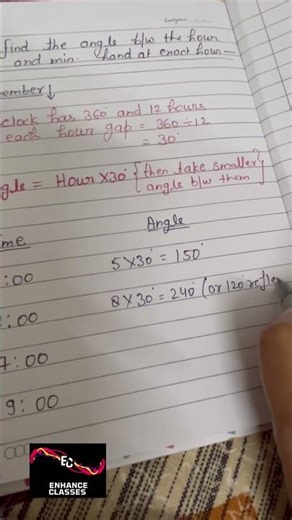 find the angle b/w the hour
and min. hand at exact hour
ember↓
clock has 360° and 12 hours
each hour gap = 360÷12
= 30°
gle = Hour×30° {then take smaller
angle b/w them}
me
Angle
:00
5×30° = 150°
:00
8×30° = 240° (or 120° refle
7:00
9:00
EC
ENHANCE
CLASSES